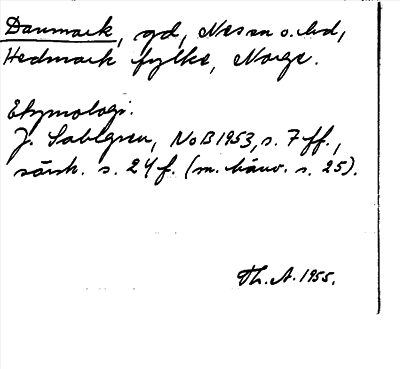 Danmark, gd, Nes sn o. hd,
Hedmark fylke, Norge.
Etymologi.
J. Sahlgren, NoB 1953, s. 7 ff.,
särsk. s. 24 f. (m. hänv. s. 25).
Th. A. 1955.